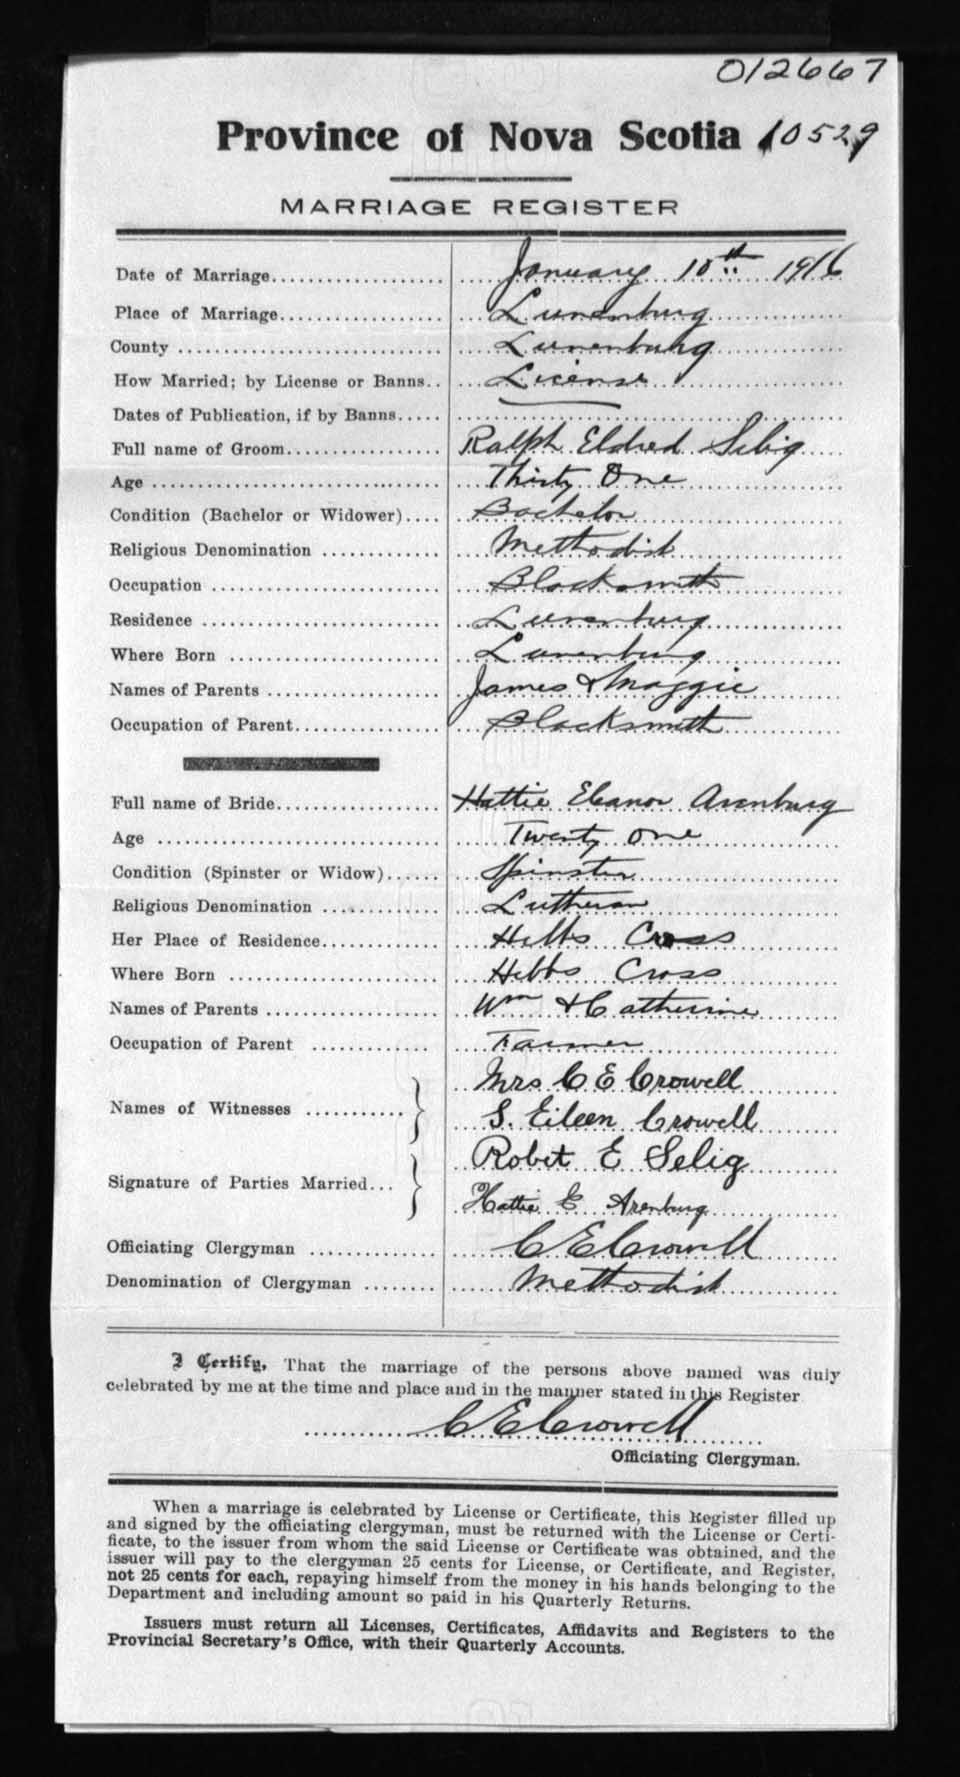 012667
Province of Nova Scotia 10529
MARRIAGE REGISTER
Date of Marriage.................... January 10th 1916
Place of Marriage.................. Lunenburg
County ............................. Lunenburg
How Married; by License or Banns.. License
Dates of Publication, if by Banns.....
Full name of Groom................. Ralph Eldred Selig
Age ................................ Thirty One
Condition (Bachelor or Widower).... Bachelor
Religious Denomination ............. Methodist
Occupation ......................... Blacksmith
Residence .......................... Lunenburg
Where Born ....................... Lunenburg
Names of Parents ................... James & Maggie
Occupation of Parent................ Blacksmith
Full name of Bride.................. Hattie Eleanor Arenburg
Age ............................... Twenty One
Condition (Spinster or Widow)...... Spinster
Religious Denomination ............. Lutheran
Her Place of Residence............. Hebbs Cross
Where Born ....................... Hebbs Cross
Names of Parents ................... Wm & Catherine
Occupation of Parent ............. Farmer
Mrs C E Crowell
Names of Witnesses ........... S. Eileen Crowell
Robet E Selig
Signature of Parties Married...
Hattie E Arenburg
Officiating Clergyman .............. C E Crowell
Denomination of Clergyman ........ Methodist
I Certify, That the marriage of the persons above named was duly
celebrated by me at the time and place and in the manner stated in this Register
C E Crowell
Officiating Clergyman.
When a marriage is celebrated by License or Certificate, this Register filled up
and signed by the officiating clergyman, must be returned with the License or Certi-
ficate, to the issuer from whom the said License or Certificate was obtained, and the
issuer will pay to the clergyman 25 cents for License, or Certificate, and Register,
not 25 cents for each, repaying himself from the money in his hands belonging to the
Department and including amount so paid in his Quarterly Returns.
Issuers must return all Licenses, Certificates, Affidavits and Registers to the
Provincial Secretary's Office, with their Quarterly Accounts.